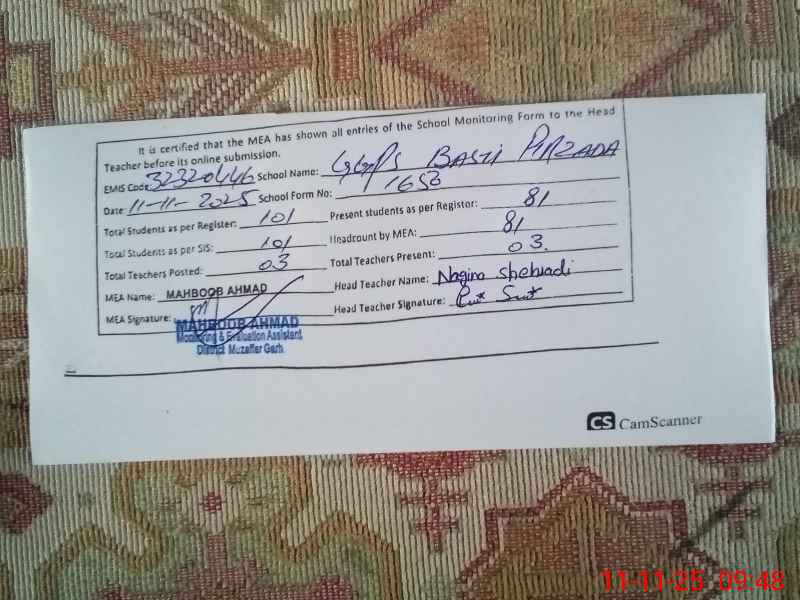 It is certified that the MEA has shown all entries of the School Monitoring Form to the Head
Teacher before its online submission.
EMIS Code: 32320446 School Name: GGPS BASTI PIRZADA
Date: 11-11-2025 School Form No: 1650
Total Students as per Register: 101 Present students as per Registor: 81
Total Students as per SIS: 101 Headcount by MEA: 81
Total Teachers Posted: 03 Total Teachers Present: 03.
MEA Name: MAHBOOB AHMAD Head Teacher Name: Nagina
MEA Signature: Head Teacher Signature:
MAHBOOB AHMAD
Monitoring & Evaluation Assistant
District Muzaffar Garh
CS CamScanner
11-11-25 09:48